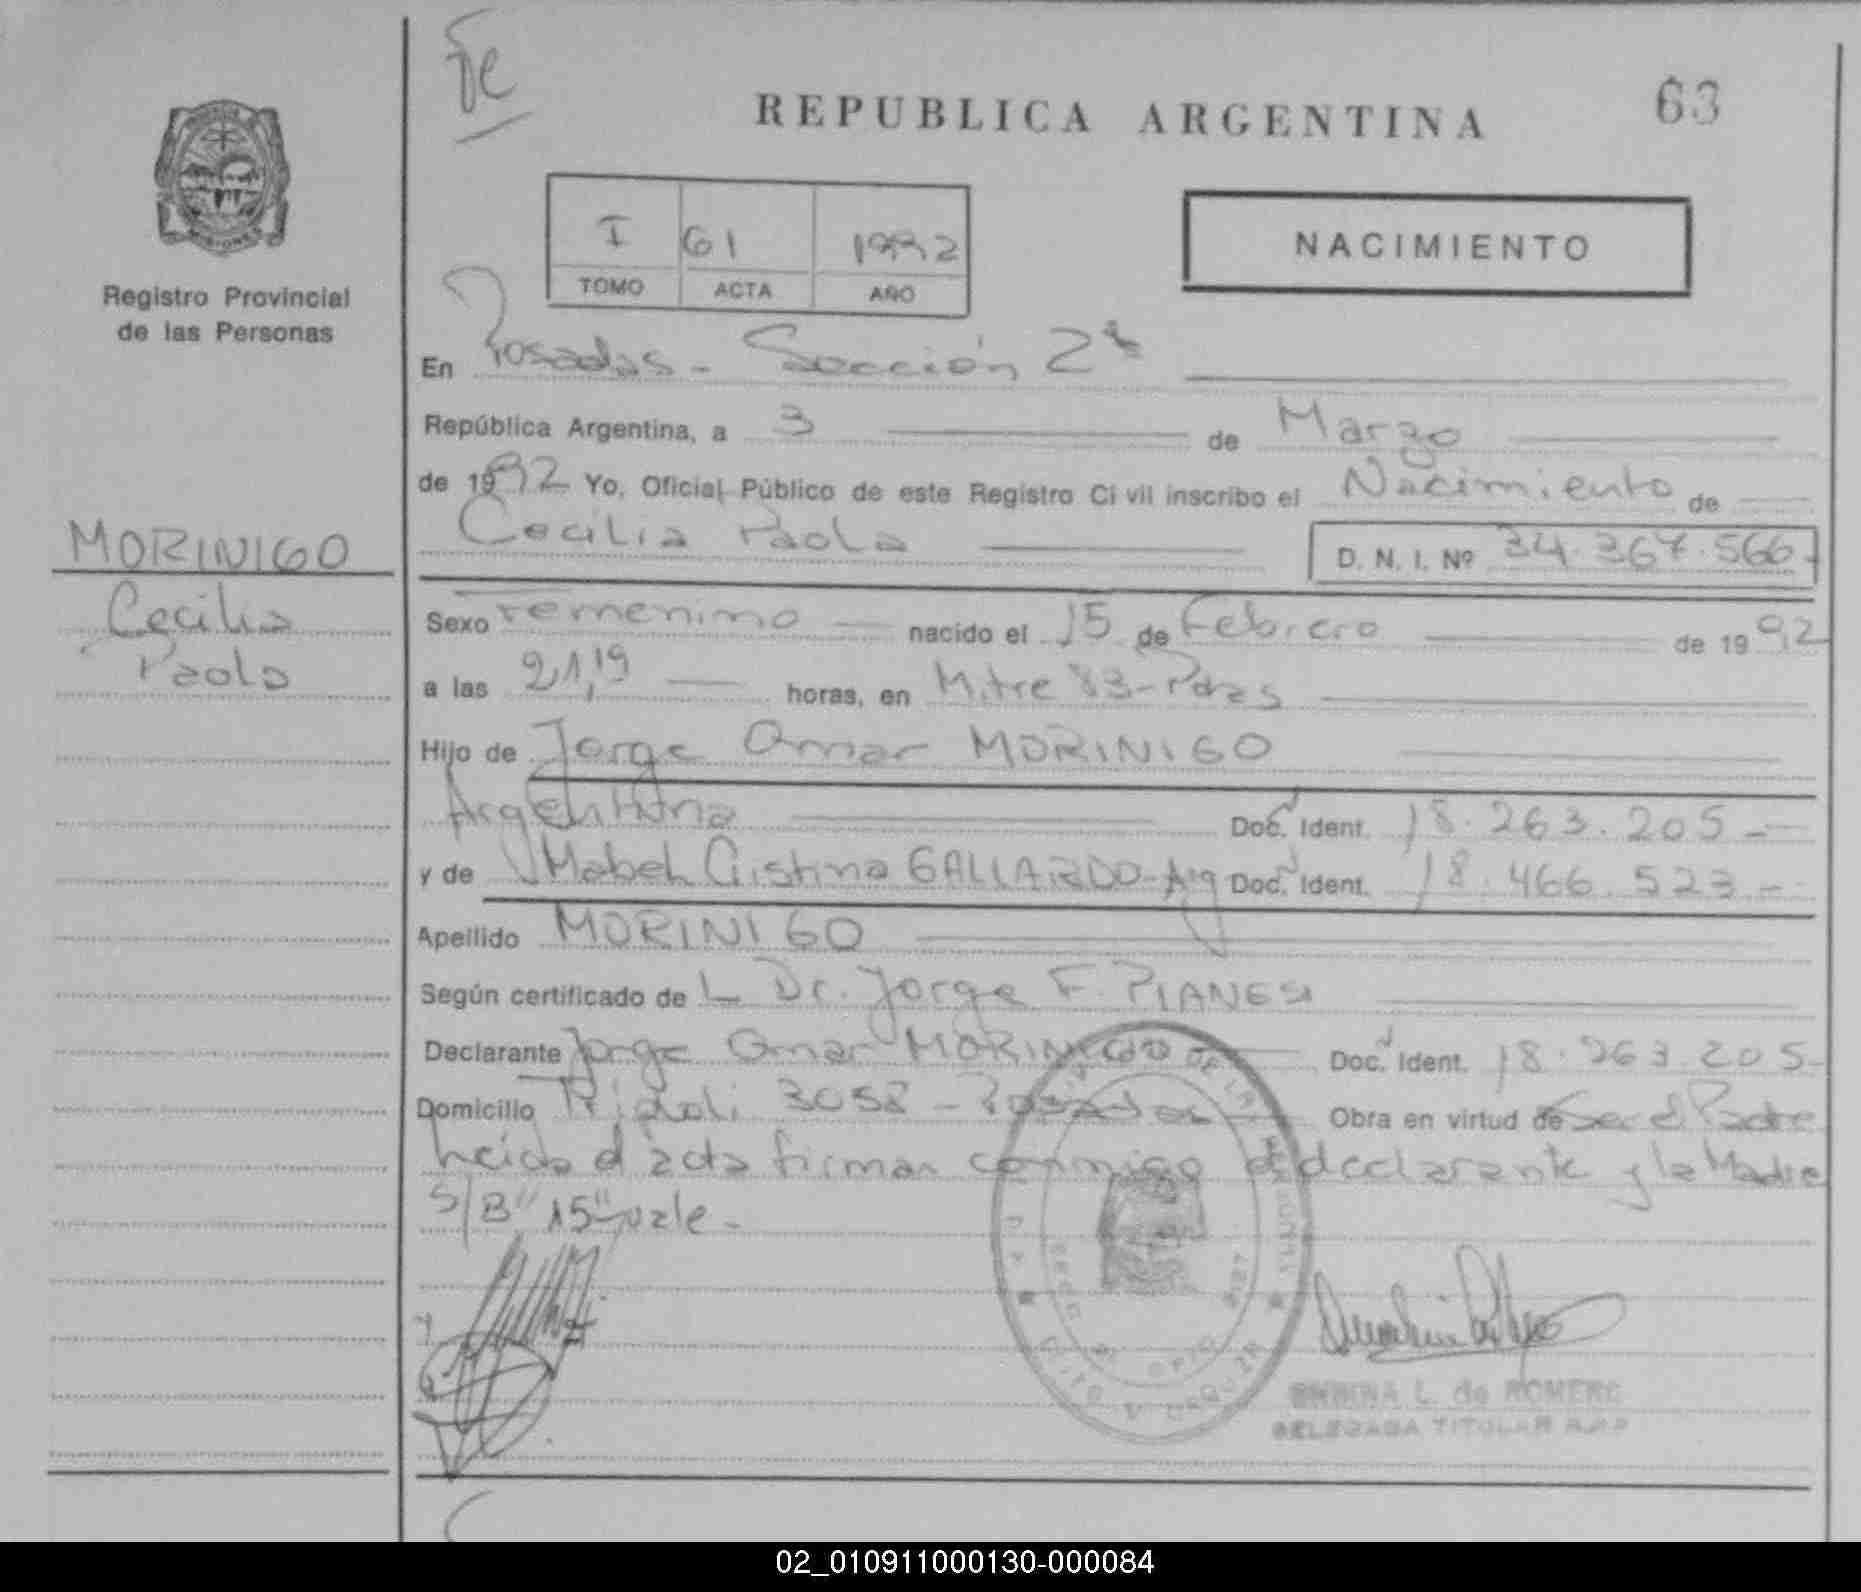 Fe
REPUBLICA ARGENTINA
63
MISIONES
Registro Provincial
de las Personas
I 61 1992
TOMO ACTA AÑO
NACIMIENTO
En Posadas - Sección 2ª
República Argentina, a 3 de Marzo
de 1992 Yo, Oficial Público de este Registro Civil inscribo el Nacimiento de
Cecilia Paola D. N. I. Nº 34.367.566-
MORINIGO
Cecilia
Paola
Sexo Femenino nacido el 15 de Febrero de 1992
a las 21,19 horas, en Mitre 83-Pdas
Hijo de Jorge Omar MORINIGO
Argentina Doc. Ident. 18.263.205-
y de Mabel Cristina GALLARDO-Arg Doc. Ident. 18.466.523-
Apellido MORINIGO
Según certificado de L Dr. Jorge F. PIANESI
Declarante Jorge Omar MORINIGO Doc. Ident. 18.263.205-
Domicilio 3058 - Posadas Obra en virtud de Ser el Padre
Leida el acta firman conmigo el declarante y la Madre
S/B "15" vale-
L. de ROMERO
DELEGADA TITULAR R.P.P
02_010911000130-000084